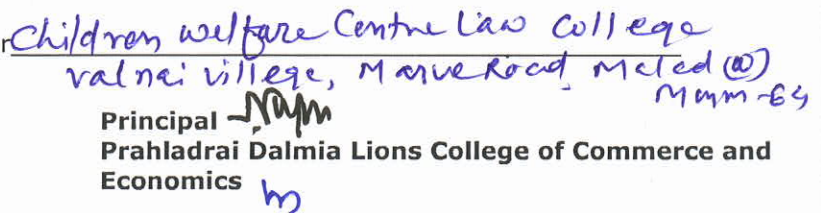 Children welfare Centre Law College
valnai village, Marve Road, Malad (W)
Mum-64
Principal
Prahladrai Dalmia Lions College of Commerce and
Economics